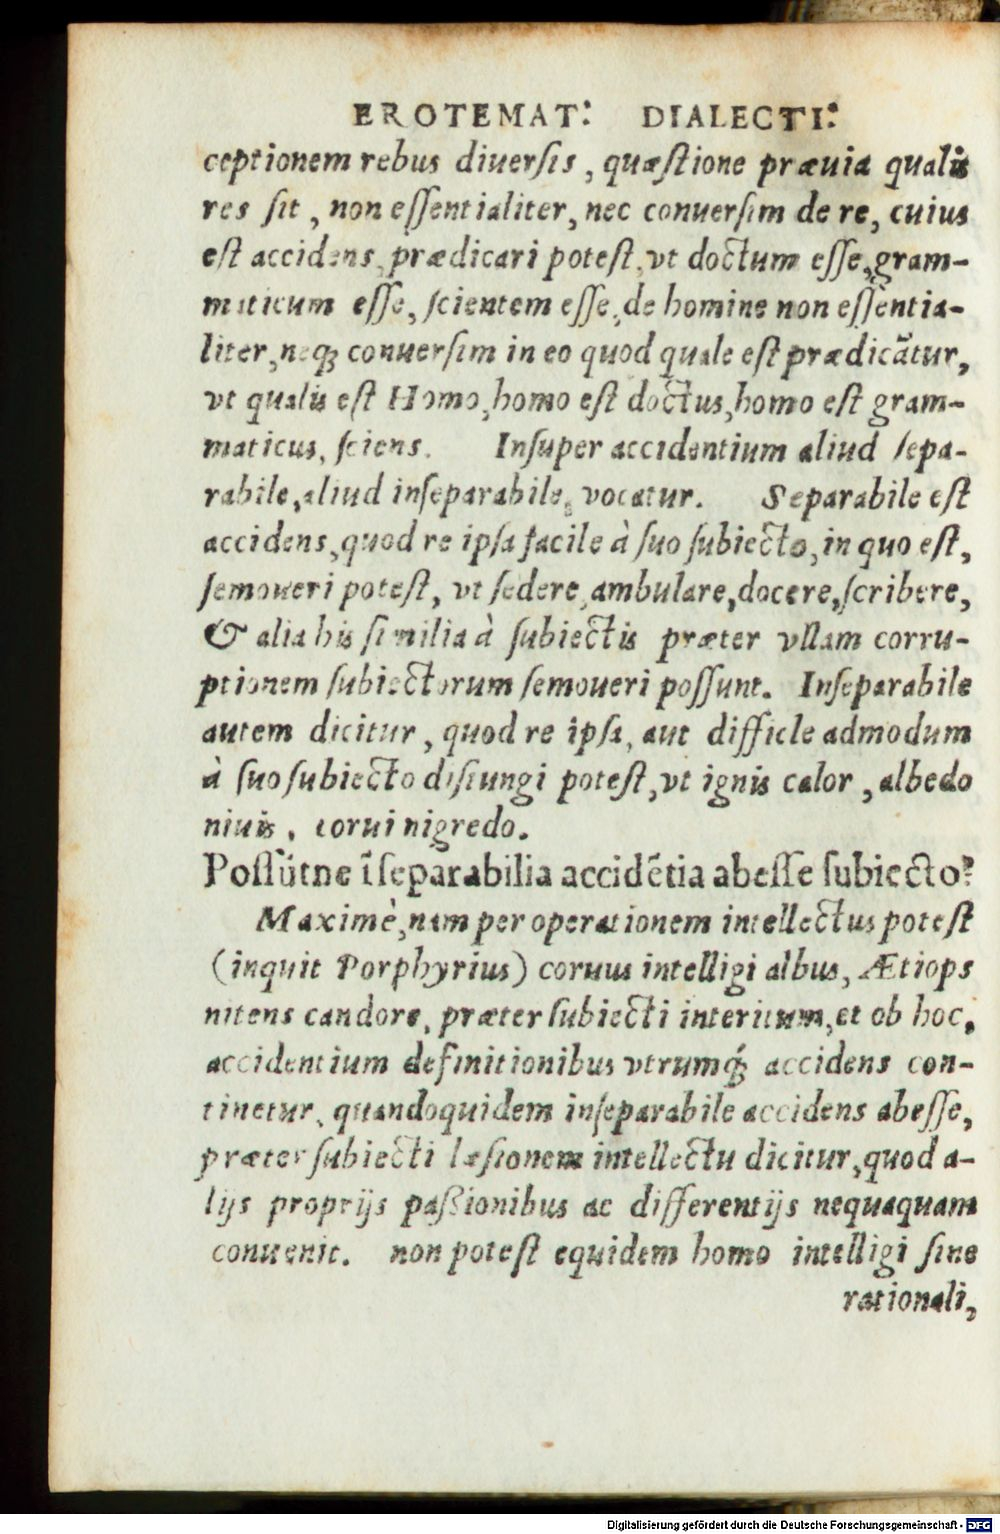 EROTEMAT: DIALECTI:
ceptionem rebus diuersis, quæstione præuia qualis
res sit, non essentialiter, nec conuersim de re, cuius
est accidens, prædicari potest, vt doctum esse, gram-
maticum esse, scientem esse, de homine non essentia-
liter, neq; conuersim in eo quod quale est prædicãtur,
vt qualis est Homo, homo est doctus, homo est gram-
maticus, sciens. Insuper accidentium aliud sepa-
rabile, aliud inseparabile, vocatur. Separabile est
accidens, quod re ipsa facile à suo subiecto, in quo est,
semoueri potest, vt sedere, ambulare, docere, scribere,
& alia his similia à subiectis præter vllam corru-
ptionem subiectorum semoueri possunt. Inseparabile
autem dicitur, quod re ipsa, aut difficle admodum
à suo subiecto disiungi potest, vt ignis calor, albedo
niuis, corui nigredo.
Possũtne ĩseparabilia accidẽtia abesse subiecto?
Maximè, nam per operationem intellectus potest
(inquit Porphyrius) coruus intelligi albus, Ætiops
nitens candore, præter subiecti interitum, et ob hoc,
accidentium definitionibus vtrumq́; accidens con-
tinetur, quandoquidem inseparabile accidens abesse,
præter subiecti læsionem intellectu dicitur, quod a-
lijs proprijs paßionibus ac differentijs nequaquam
conuenit. non potest equidem homo intelligi sine
rationali,
Digitalisierung gefördert durch die Deutsche Forschungsgemeinschaft - DFG